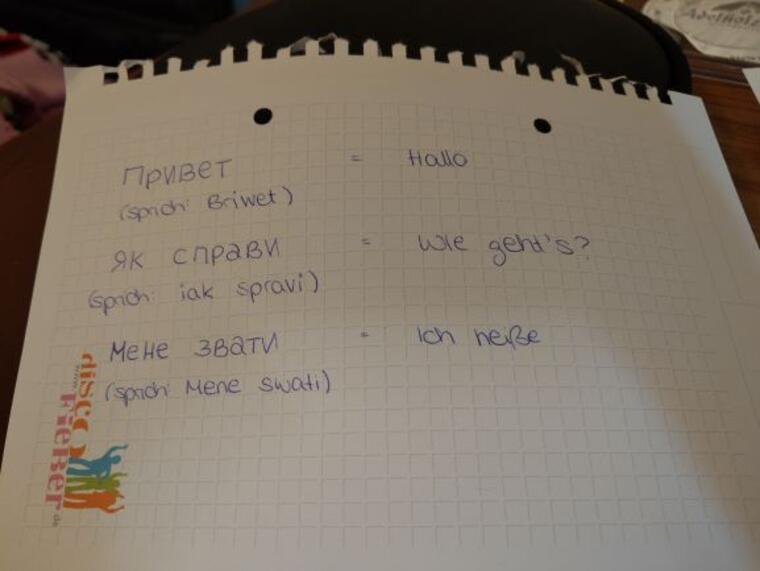 Adelholz
Привет = Hallo
(sprich: Briwet)
як справи = Wie geht's?
(sprich: iak spravi)
мене звати = Ich heiße
(sprich: Mene swati)
disco
www.FieBer.de